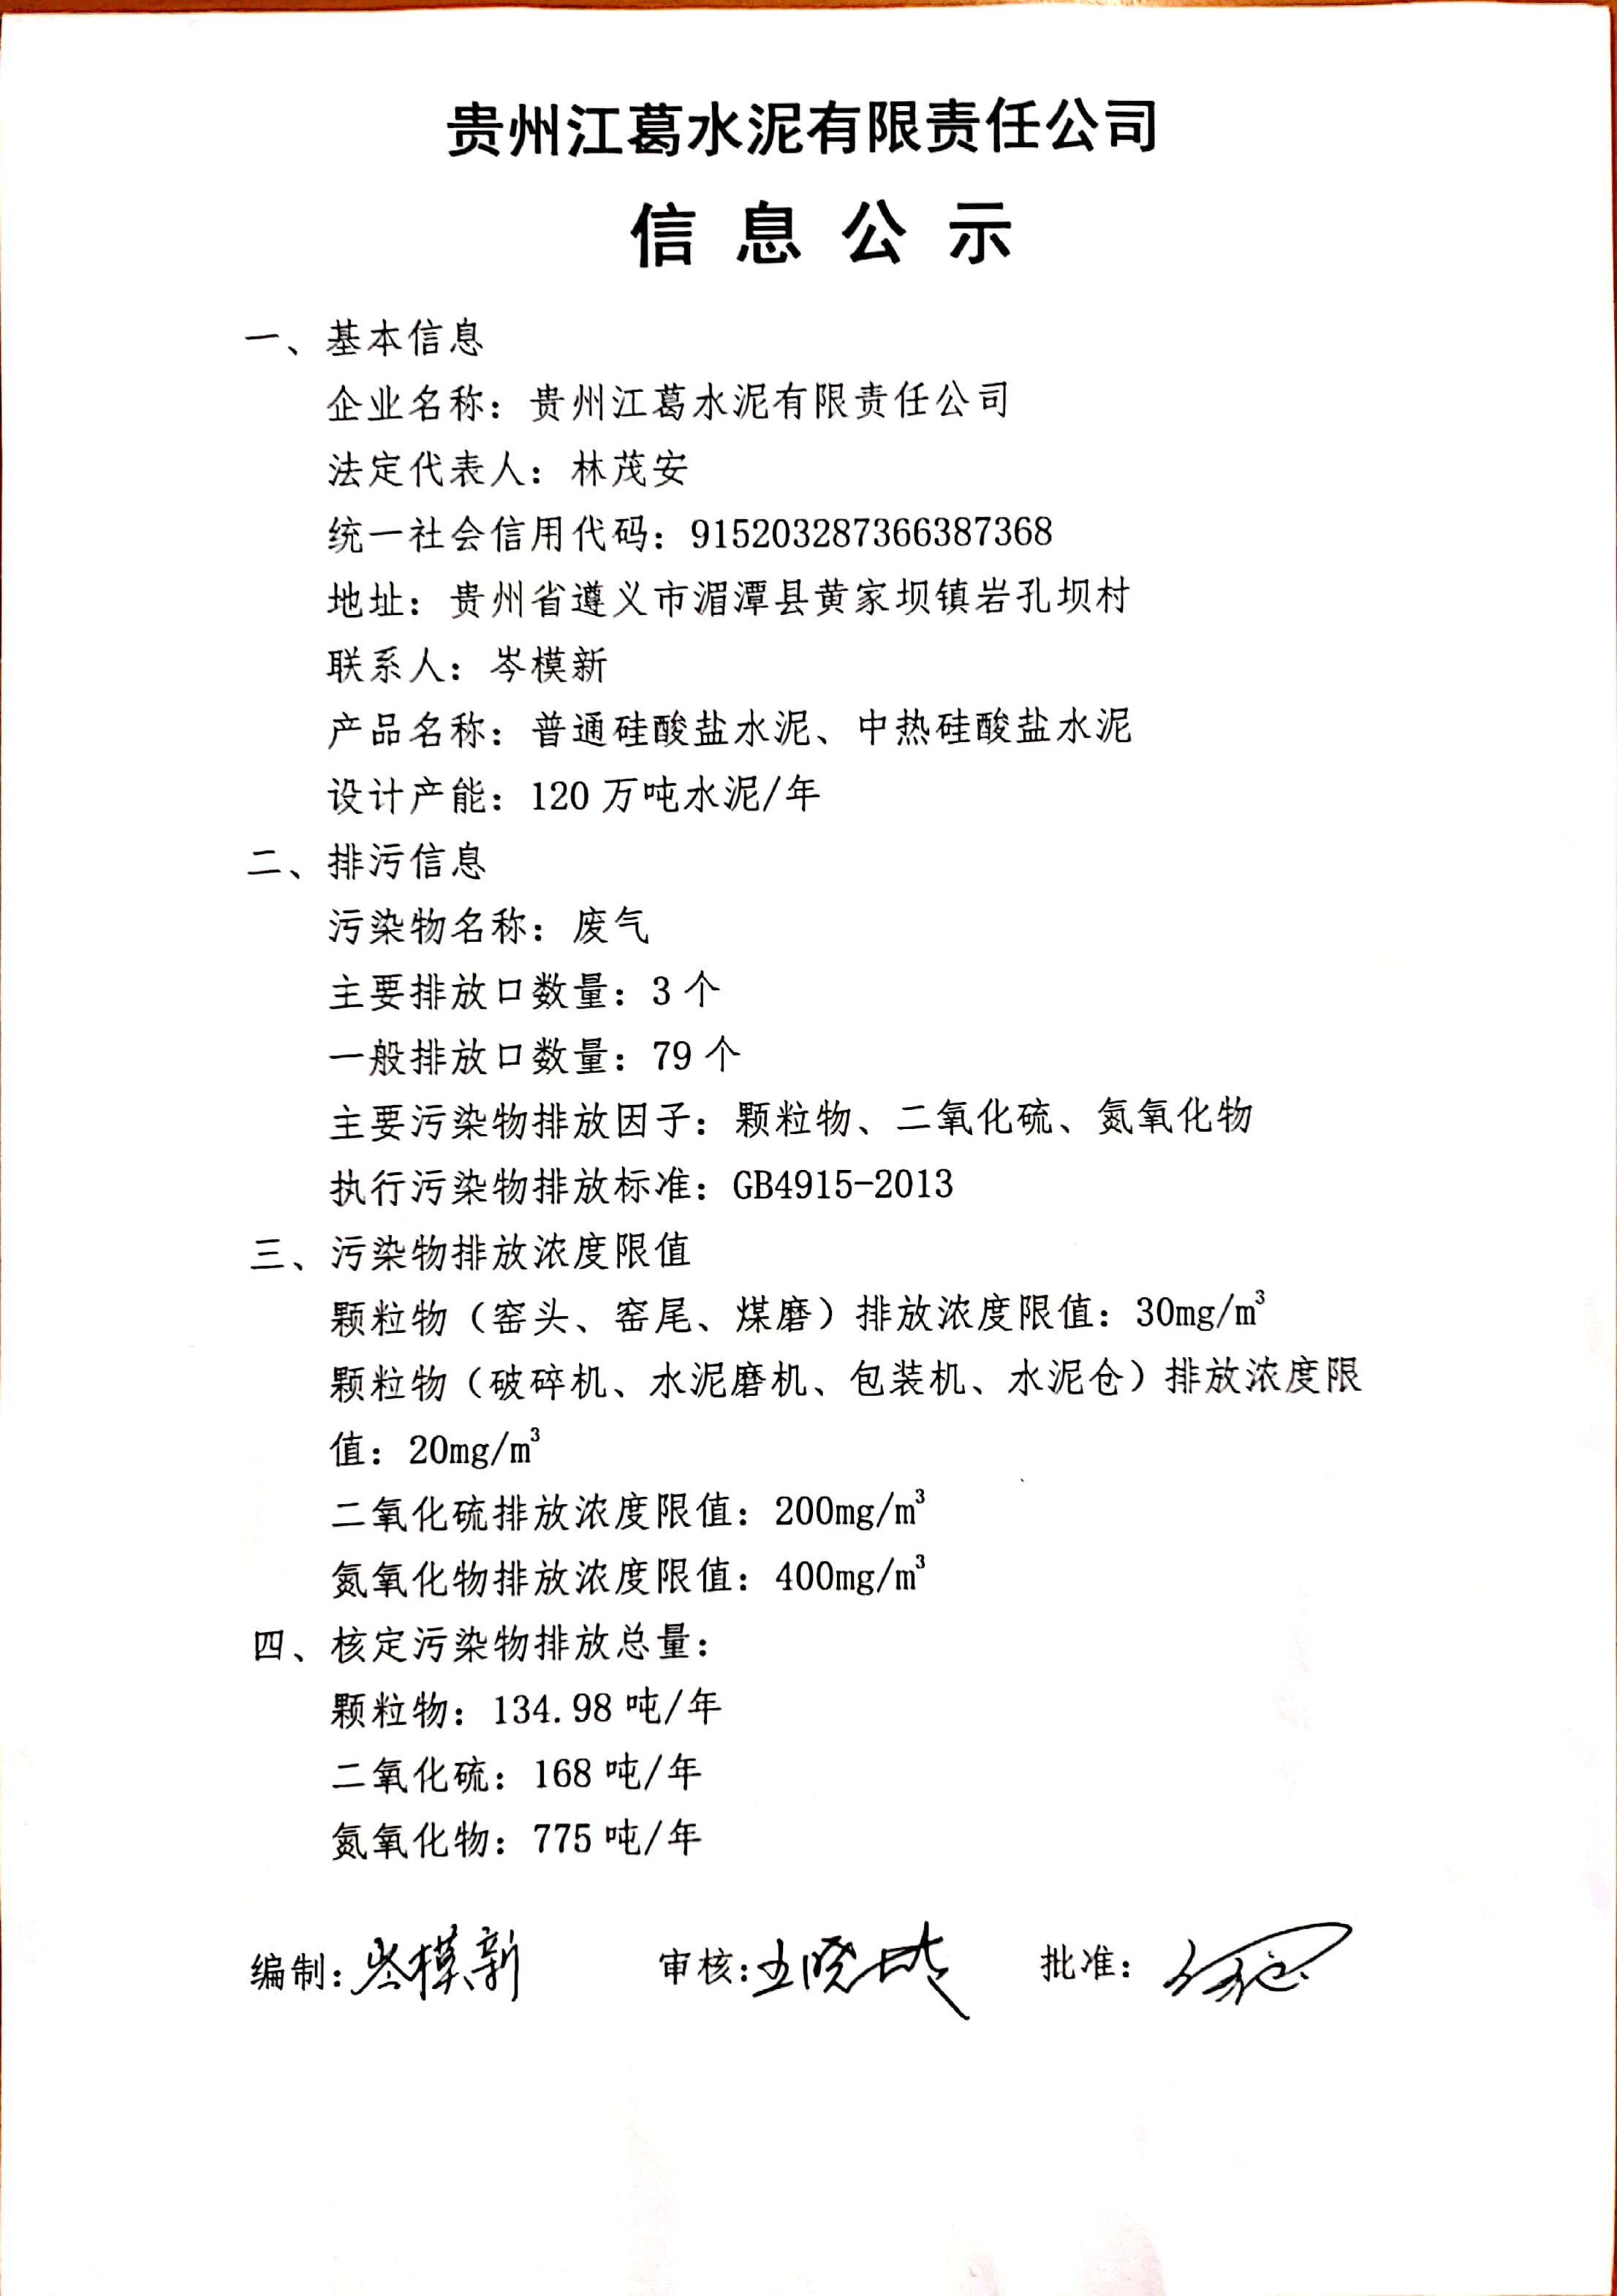 贵州江葛水泥有限责任公司
信息公示
一、基本信息
企业名称：贵州江葛水泥有限责任公司
法定代表人：林茂安
统一社会信用代码：915203287366387368
地址：贵州省遵义市湄潭县黄家坝镇岩孔坝村
联系人：岑模新
产品名称：普通硅酸盐水泥、中热硅酸盐水泥
设计产能：120万吨水泥/年
二、排污信息
污染物名称：废气
主要排放口数量：3个
一般排放口数量：79个
主要污染物排放因子：颗粒物、二氧化硫、氮氧化物
执行污染物排放标准：GB4915-2013
三、污染物排放浓度限值
颗粒物（窑头、窑尾、煤磨）排放浓度限值：30mg/m³
颗粒物（破碎机、水泥磨机、包装机、水泥仓）排放浓度限
值：20mg/m³
二氧化硫排放浓度限值：200mg/m³
氮氧化物排放浓度限值：400mg/m³
四、核定污染物排放总量：
颗粒物：134.98吨/年
二氧化硫：168吨/年
氮氧化物：775吨/年
编制：岑模新 审核： 批准：